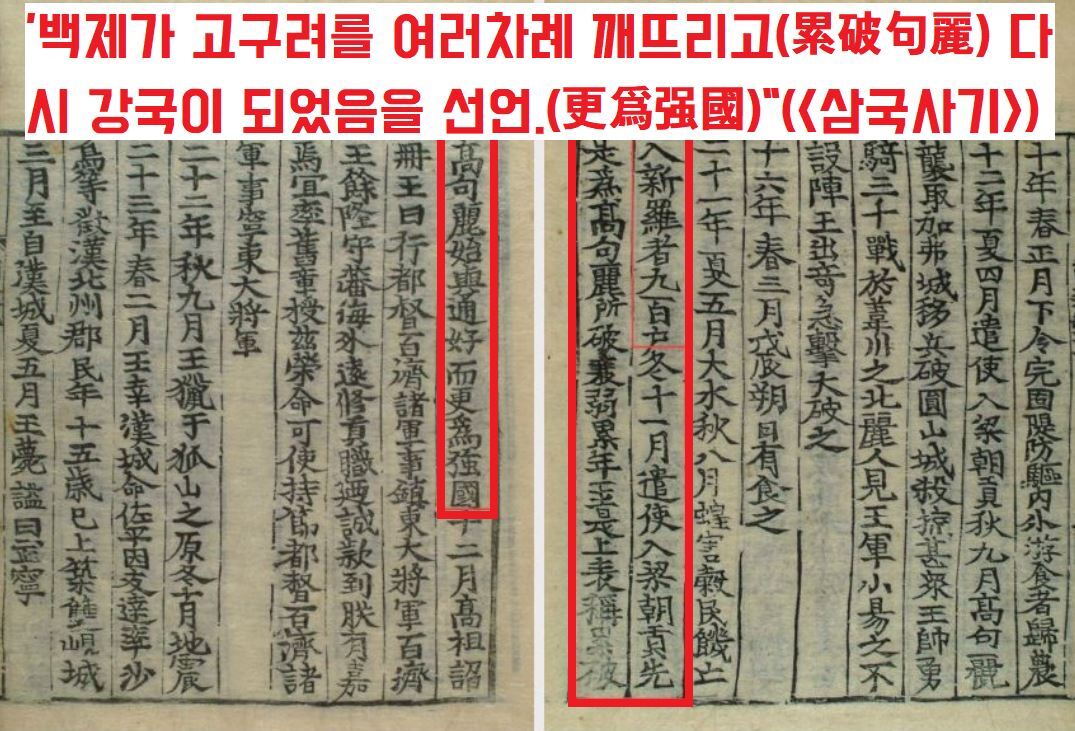 '백제가 고구려를 여러차례 깨뜨리고(累破句麗) 다
시 강국이 되었음을 선언.(更爲强國)"(<<삼국사기>>)
十年春正月下令完固隄防驅内外游食者歸農
十二年夏四月遣使入梁朝貢秋九月高句麗
襲取加弗城移兵破圓山城殺掠甚衆王帥勇
騎三千戰於葦川之北麗人見王軍小易之不
設陣王出奇急擊大破之
十六年春三月戊辰朔日有食之
二十一年夏五月大水秋八月蝗害穀民饑亡
入新羅者九百戶冬十一月遣使入梁朝貢先
是爲高句麗所破衰弱累年至是上表稱累破
高句麗始與通好而更爲強國十二月高祖詔
冊王曰行都督百濟諸軍事鎭東大將軍百濟
王餘隆守藩海外遠修貢職迺誠款到朕有嘉
焉宜率舊章授兹榮命可使持節都督百濟諸
軍事寧東大將軍
二十二年秋九月王獵于狐山之原冬十月地震
二十三年春二月王幸漢城命佐平因友達率沙
烏等徵漢北州郡民年十五歲已上築雙峴城
三月至自漢城夏五月王薨諡曰武寧